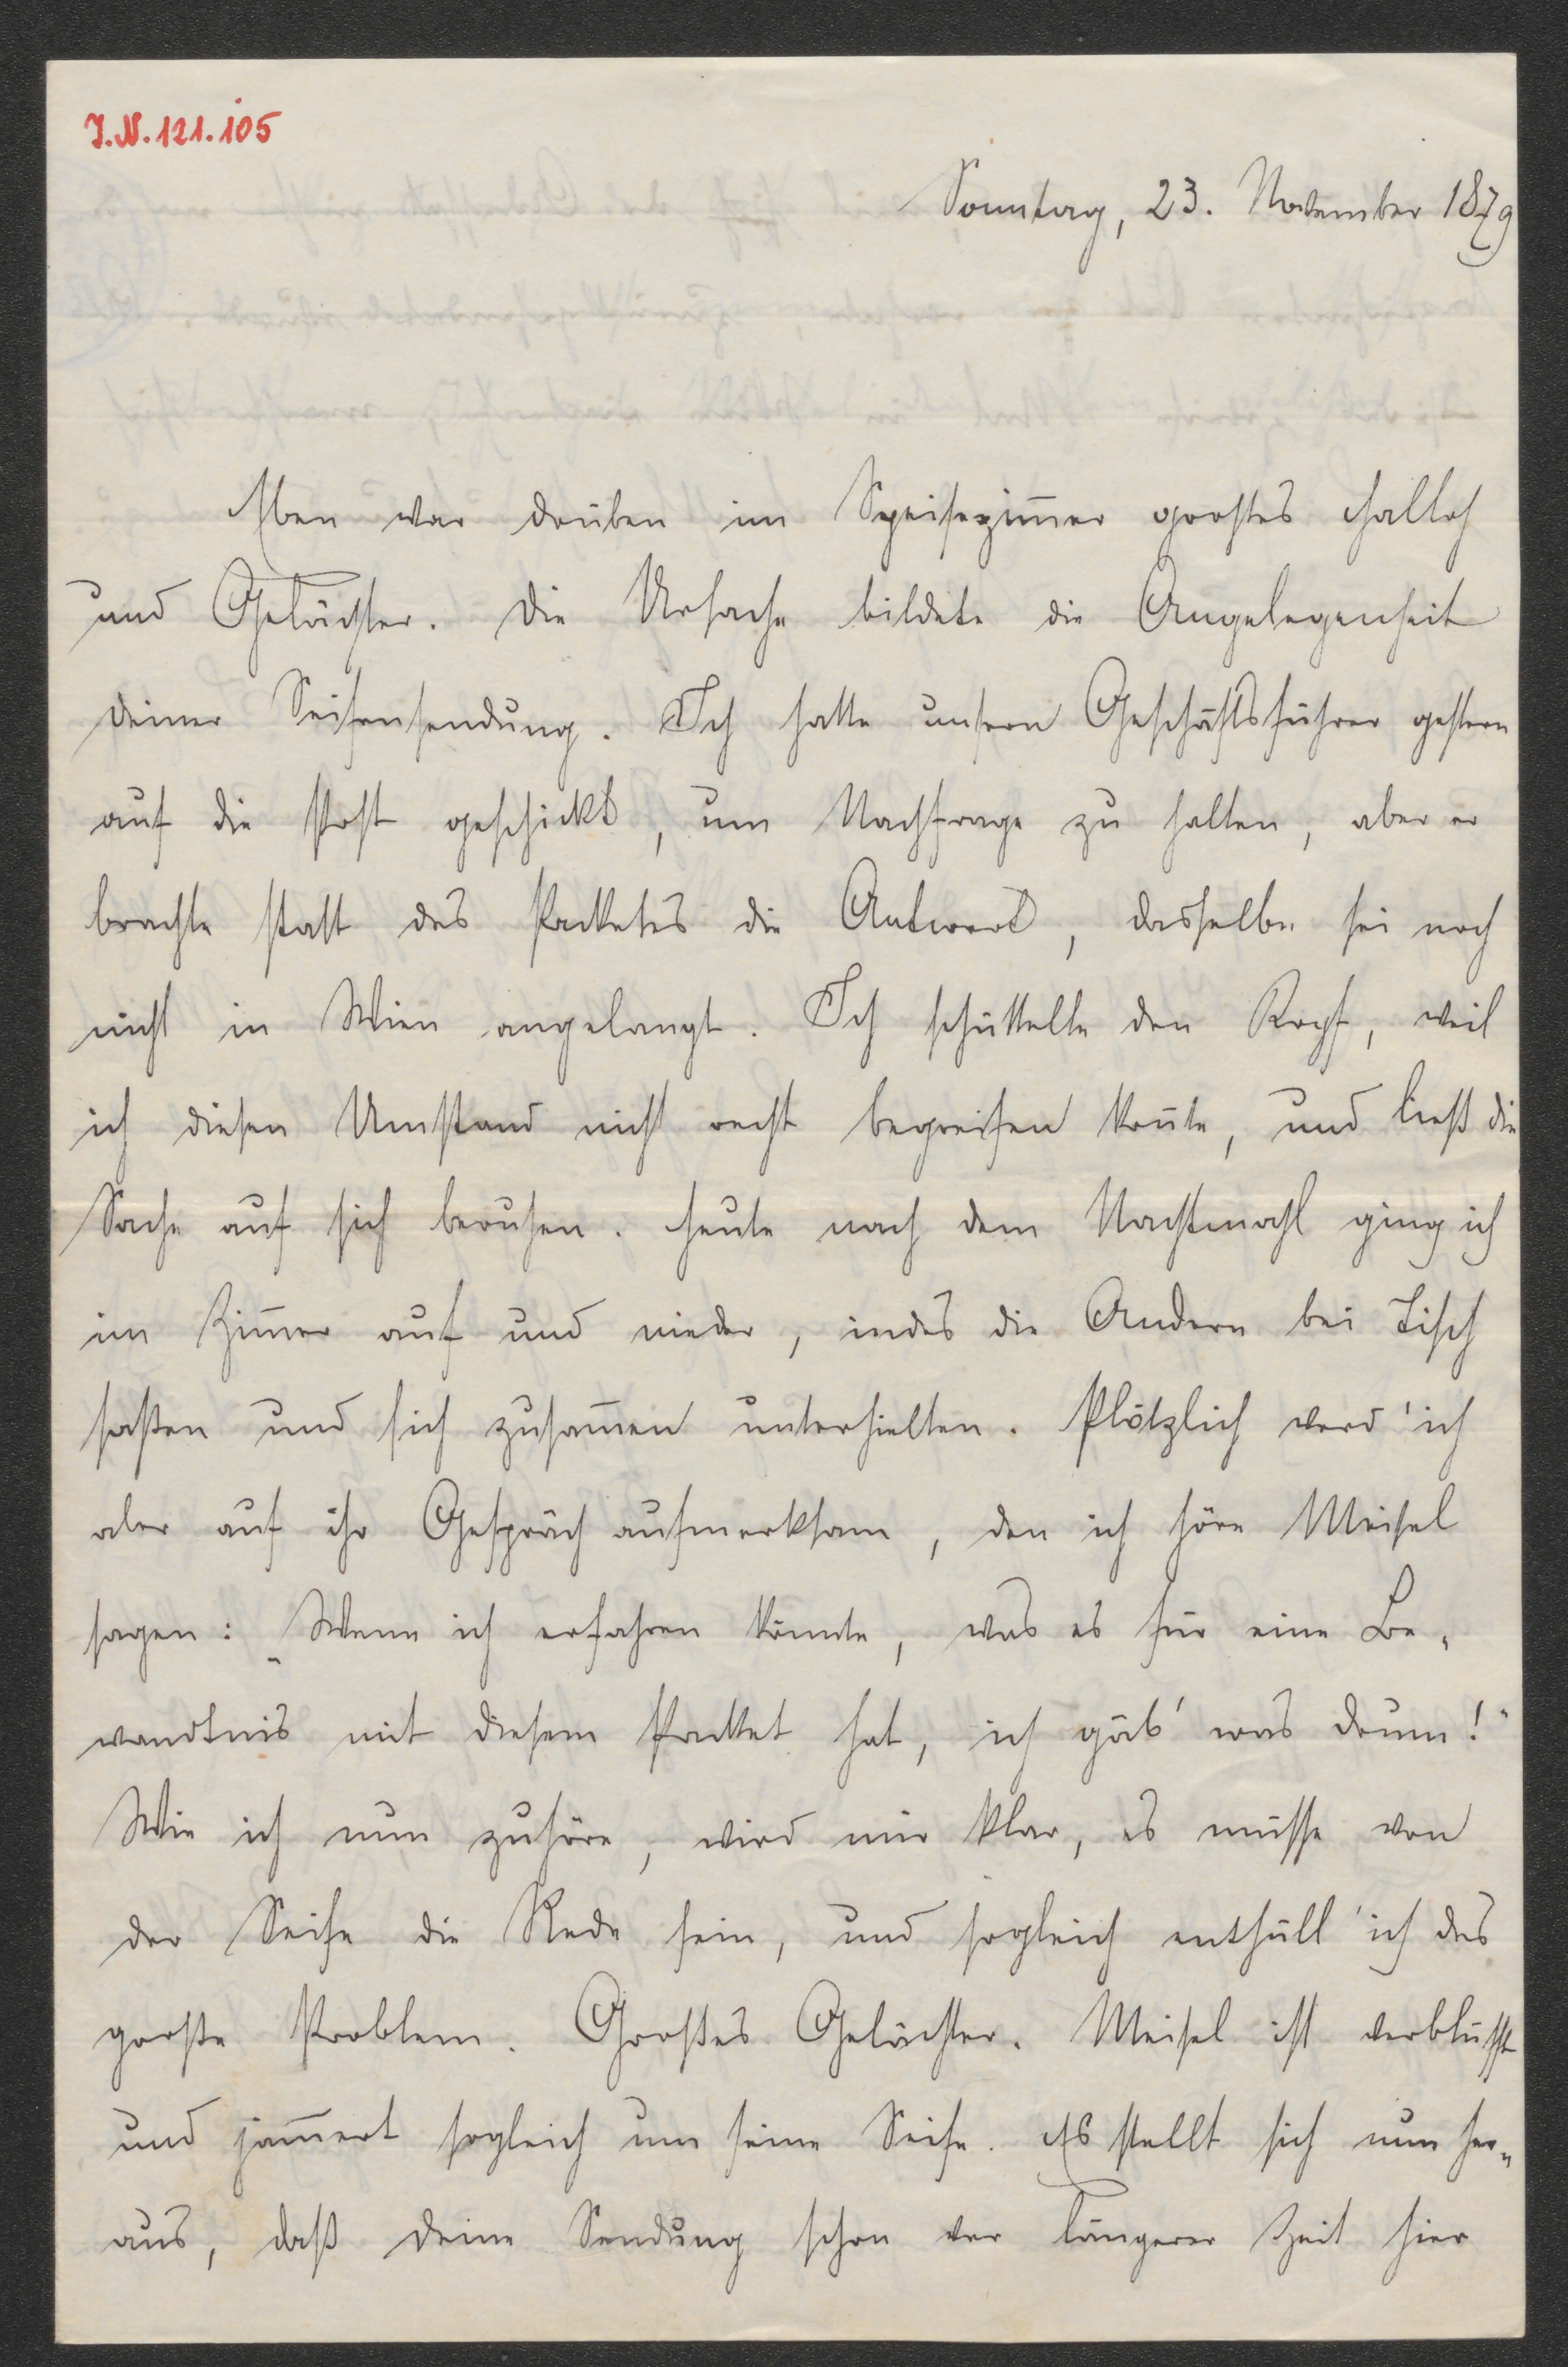 J.N. 121.105
Sonntag, 23. November 1879
Eben war drüben im Speisezim̅er großes Halloh
und Gelächter. Die Ursache bildete die Angelegenheit
deiner Seifensendung. Ich hatte unsern Geschäftsführer gestern
auf die Post geschickt, um Nachfrage zu halten, aber er
brachte statt des Packetes die Antwort, dasselbe sei noch
nicht in Wien angelangt. Ich schüttelte den Kopf, weil
ich diesen Umstand nicht recht begreifen kon̅te, und ließ die
Sache auf sich beruhen. Heute nach dem Nachtmahl ging ich
im Zim̅er auf und nieder, indes die Andern bei Tisch
saßen und sich zusam̅en unterhielten. Plötzlich werd' ich
aber auf ihr Gespräch aufmerksam, den ich höre Meisel
sagen: „Wenn ich erfahren könnte, was es für eine Be-
wandtnis mit diesem Packet hat, ich gäb' was drum!"
Wie ich nun zuhöre, wird mir klar, es müsse von
der Seife die Rede sein, und sogleich enthüll' ich das
große Problem. Großes Gelächter. Meisel ist verblüfft
und jam̅ert sogleich um seine Seife. Es stellt sich nun her-
aus, daß deine Sendung schon vor längerer Zeit hier